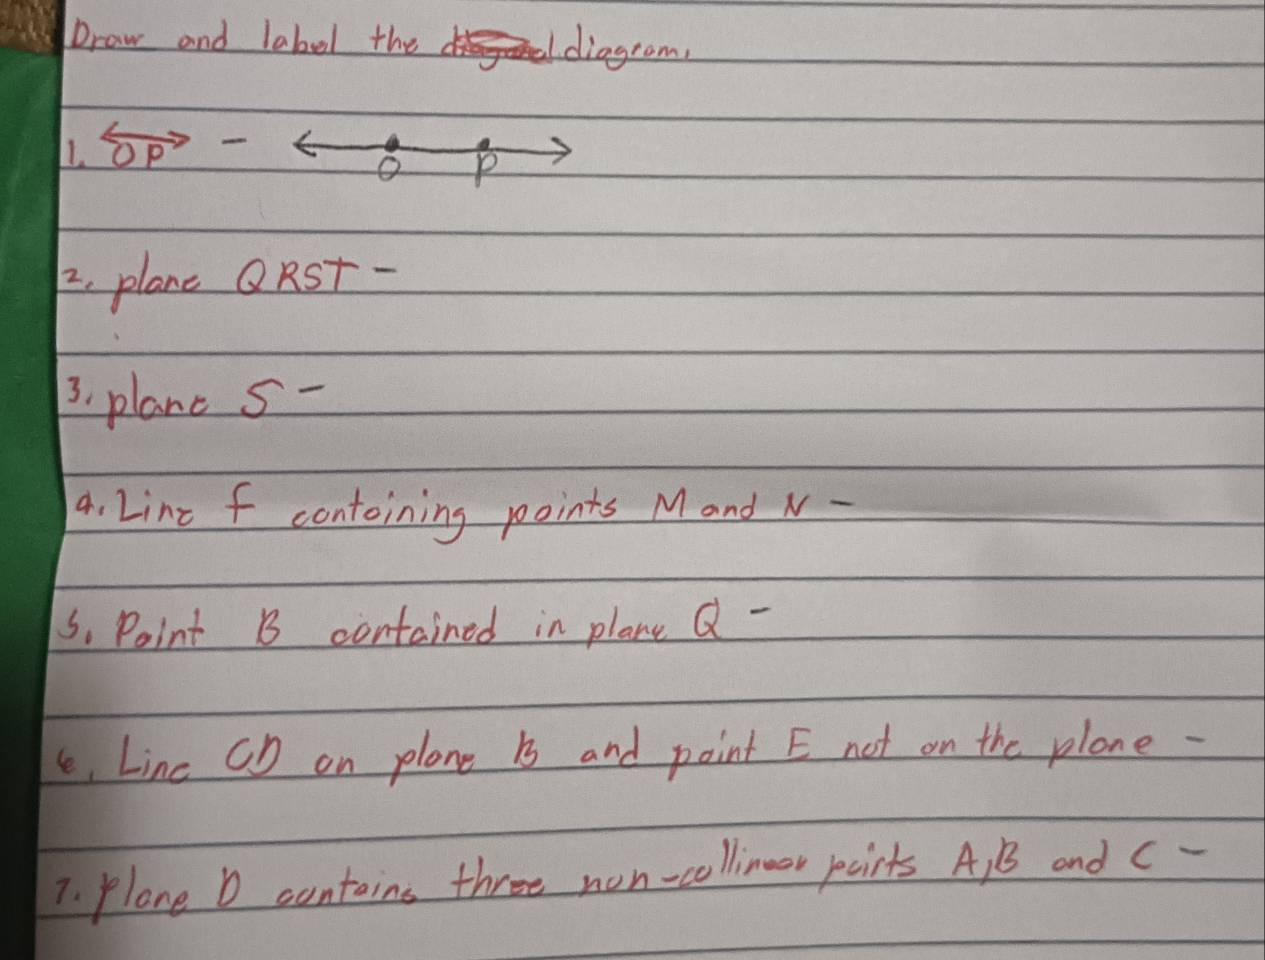 Draw and label the diagram.
1. OP - O P
2. plane QRST -
3. plane S -
4. Line f containing points M and N -
5. Point B contained in plane Q -
6. Line CD on plane B and point E not on the plane -
7. plane D contains three non-collinear points A, B and C -